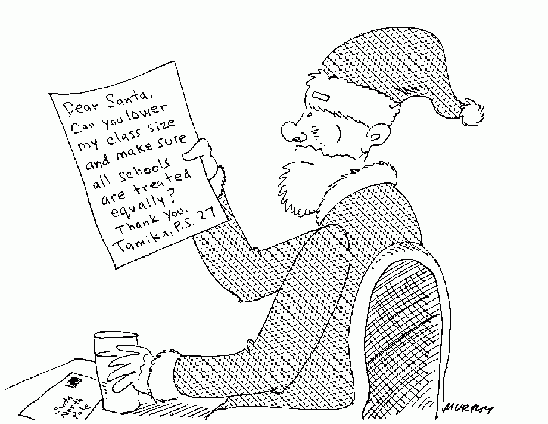 Dear Santa,
Can you lower
my class size
and make sure
all schools
are treated
equally?
Thank you,
Tamika, P.S. 27
MURPHY